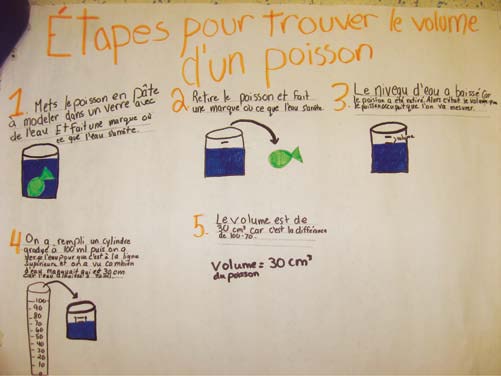 Étapes pour trouver le volume
d'un poisson
1. Mets le poisson en pâte
à modeler dans un verre avec
de l'eau. Et fait une marque où
ce que l'eau s'arrête.
2 Retire le poisson et fait
une marque où ce que l'eau s'arrête.
3. Le niveau d'eau a baissé car
le poisson a été retiré. Alors c'était le volume
le poisson que l'on va mesurer.
volume
4 On a rempli un cylindre
gradué à 100 ml puis on a
versé l'eau pour que c'est à la ligne
supérieure et on a vu combien
d'eau manquait qui est 30 cm
car l'eau
100
90
80
70
60
50
40
30
20
10
0
5. Le volume est de
30 cm³ car c'est la différence
de 100-70.
Volume = 30 cm³
du poisson